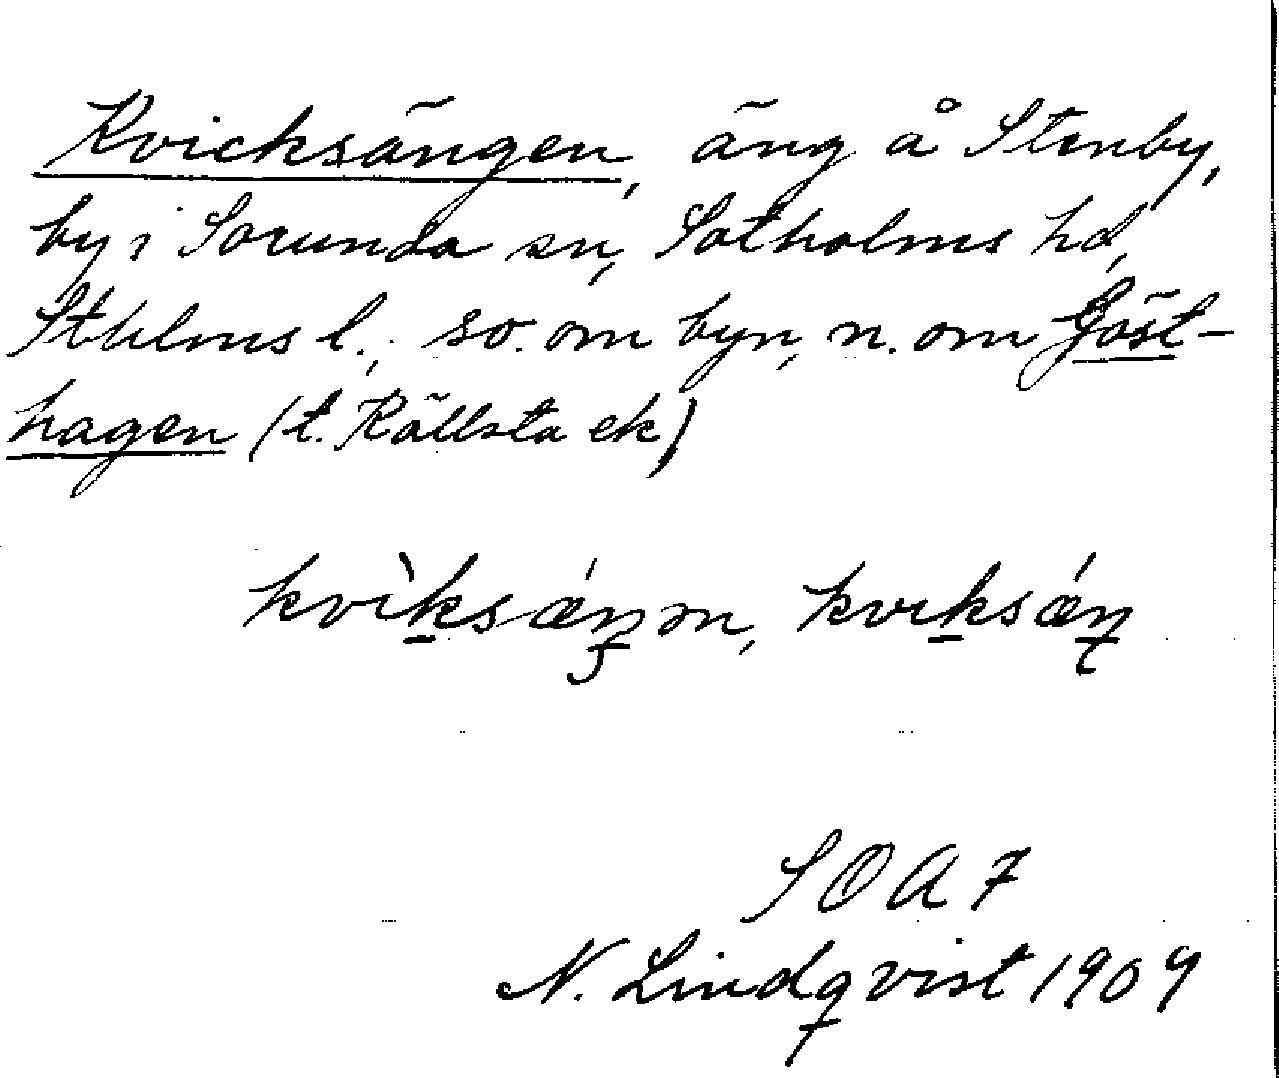 Kvicksängen, äng å Stenby,
by i Sorunda sn, Sotholms hd,
Sthlms l., so. om byn, n. om Göst-
hagen (t. Rällsta ek)
kvìksǽŋən, kviksǽŋ
SOA 7
N. Lindqvist 1909